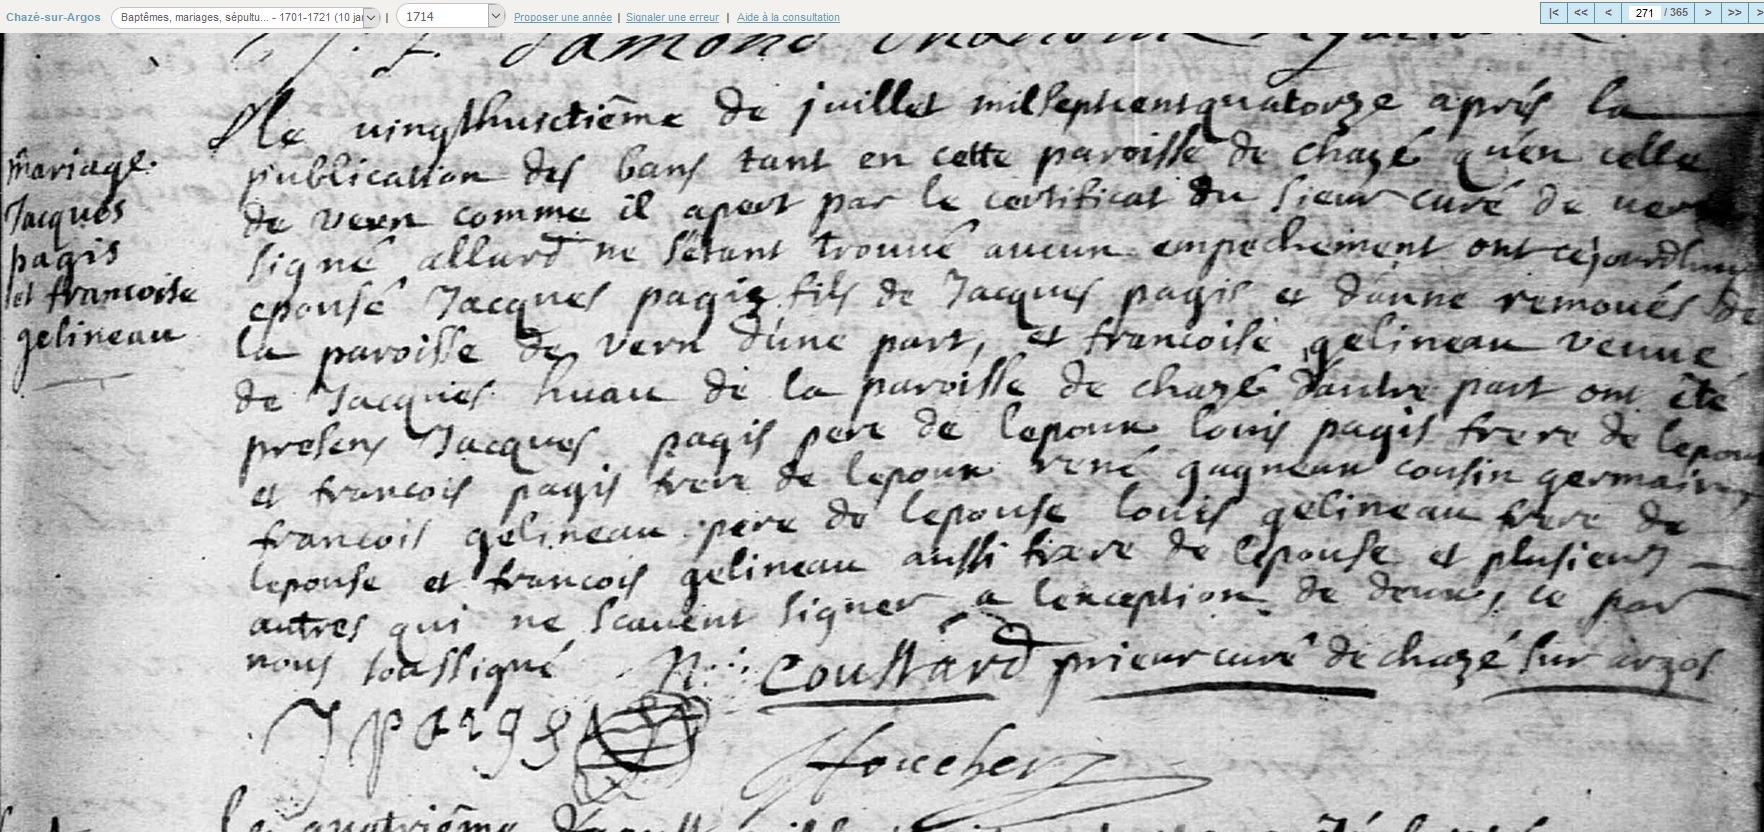 Chazé-sur-Argos Baptêmes, mariages, sépultu... - 1701-1721 (10 jar | 1714 Proposer une année | Signaler une erreur | Aide à la consultation |< << < 271 / 365 > >> >
mariage.
Jacques
pagis
et francoise
gelineau
le vingthuictiême de juillet milseptcentquatorze aprés la
publication des bans tant en cette paroisse de chazé qu'en celle
de vern comme il apert par le certificat du sieur curé de vern
signé allard ne s'étant trouué aucun empechement ont cejourdhuy
epousé Jacques pagis fils de Jacques pagis et d'anne remoués de
la paroisse de vern d'une part, et francoise gelineau veuue
de Jacques huau de la paroisse de chazé d'autre part ont été
presens Jacques pagis pere de lepoux louis pagis frere de lepoux
et francois pagis frere de lepoux rené gagneau cousin germain
francois gelineau pere de lepouse louis gelineau frere de
lepouse et francois gelineau aussi frere de lepouse et plusieurs
autres qui ne scauent signer a lexception de deux, ce par
nous soussigné N. Coussard prieur curé de chazé sur argos
J pagis ffoucher